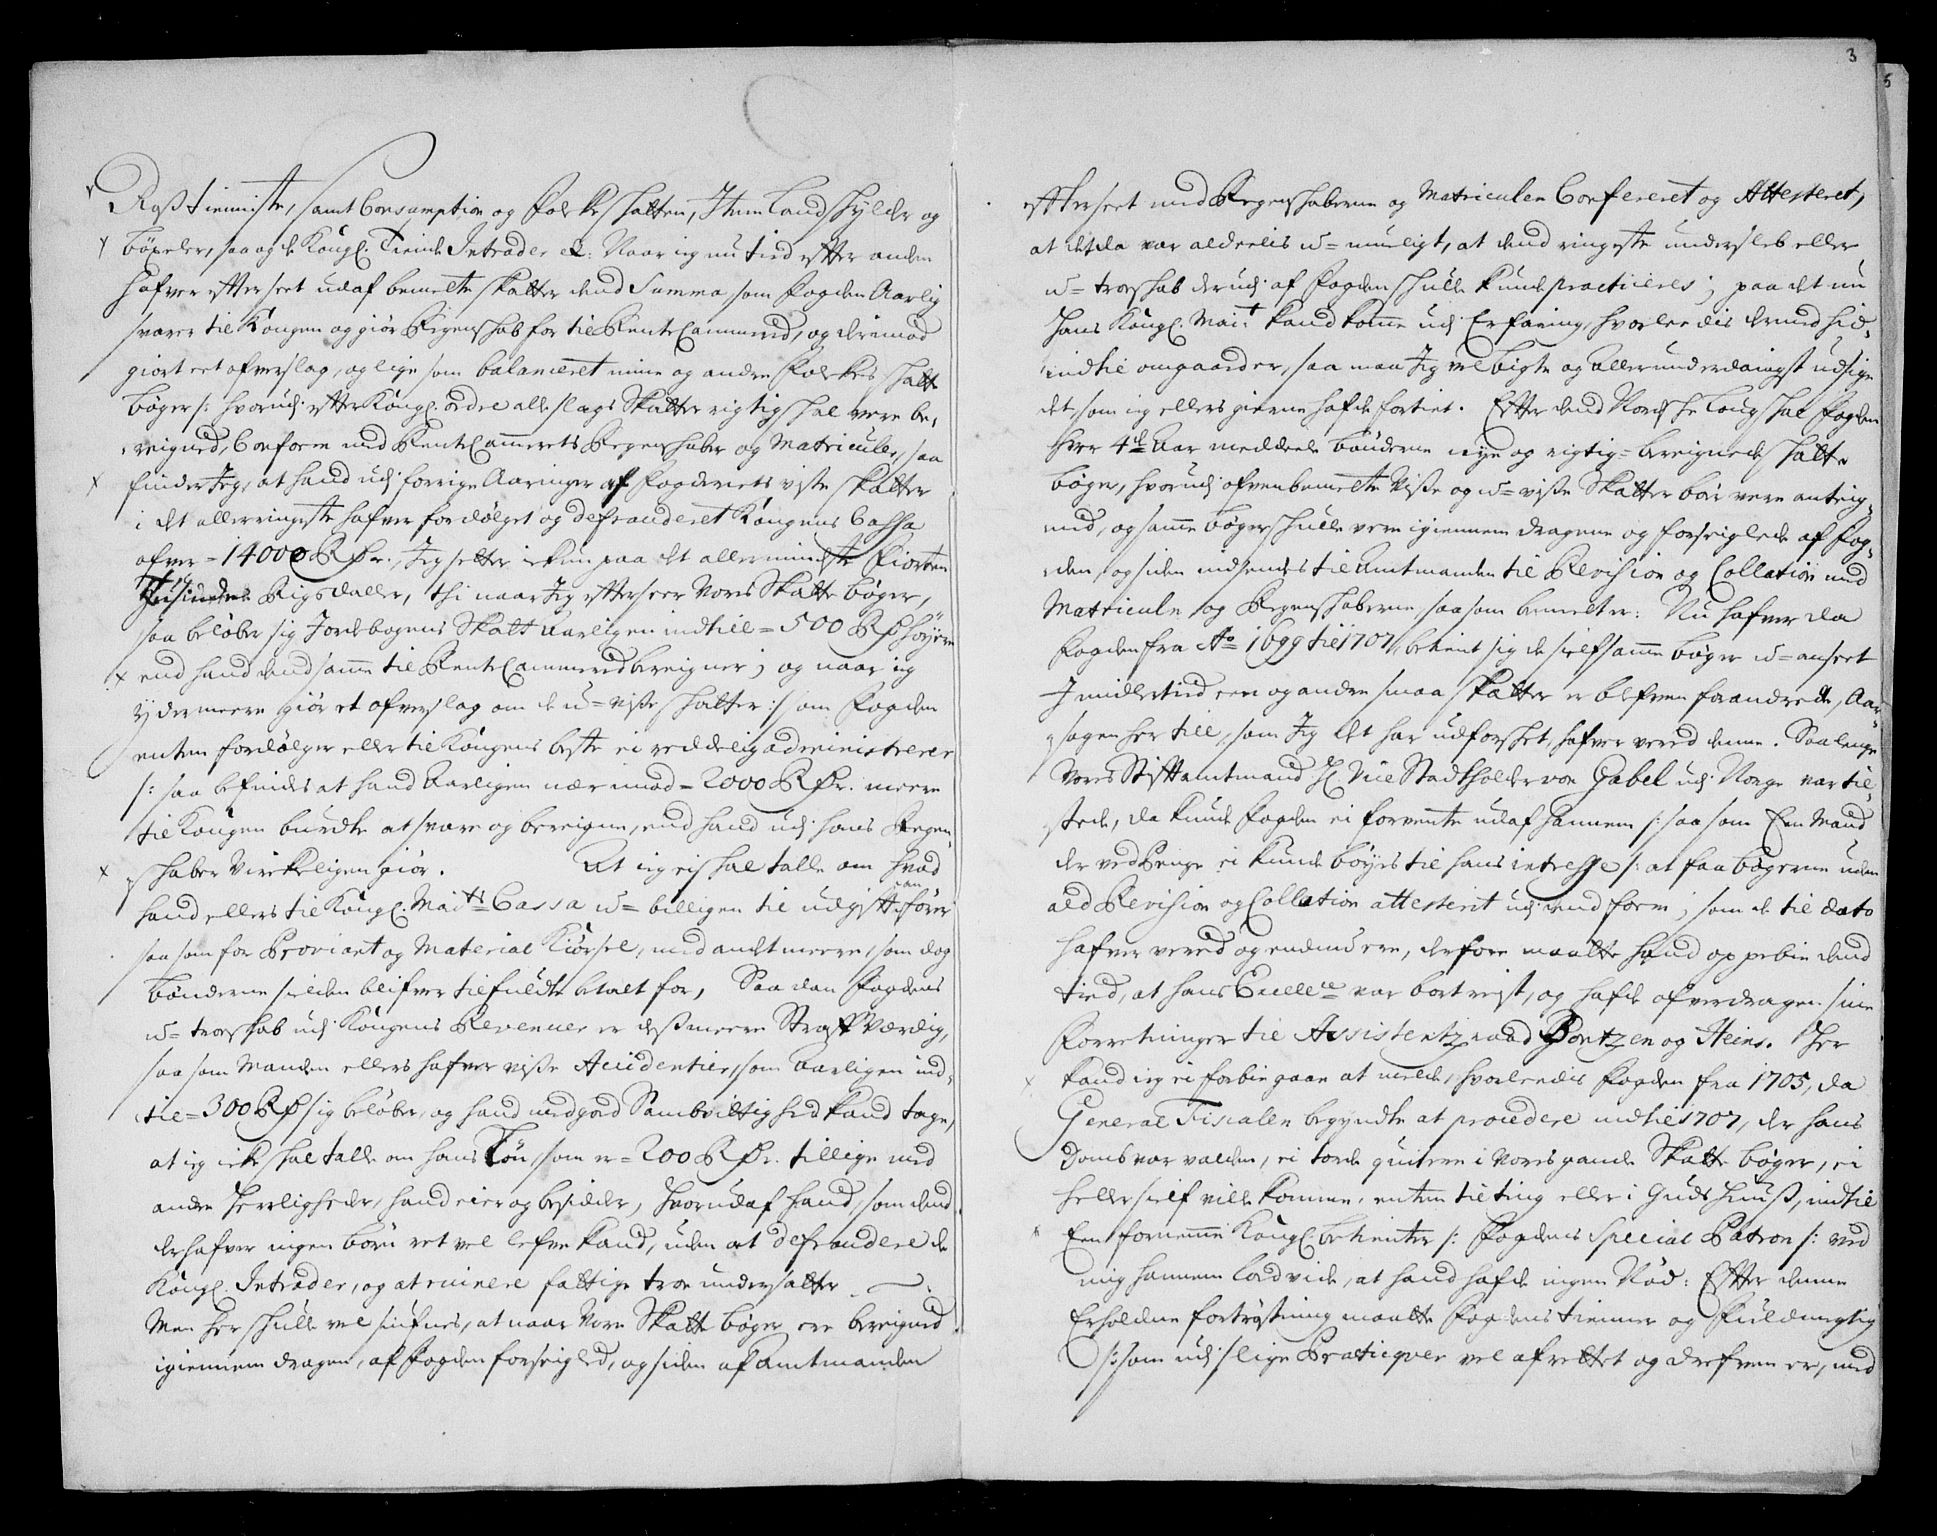 Roß tienniste, samt Consumption og Folke skatten, Item Landskylder og
böxeler, saa og de Kongl. Tiende Intrader etc: Naar ieg nu tied effter anden
hafver effterseet udaf bemelte skatter dend Summa, som Fogden Aarlig
svarer til Kongen og giör Regenskab for til RenteCammered, og derimod
giort eet ofverslag, og lige som balanceret mine og andre Folckes skatte
böger /: hvorudj effter Kongl. ordre alle slags Skatter rigtig skal vere be-
reigned, Conform med RenteCammerets Regenskaber og Matriculer, saa
finder Jeg, at hand udj forrige Aaringer af Fogderiets visse skatter
i det allerringeste hafver fordölget og defrauderet Kongens Cassa
ofver = 14000 RDr., Jeg setter ickun paa det allermindste Fiorten
tusinde Rigsdaller, thi naar Jeg effterseer vores Skatte böger,
saa belöber sig Jordebogens Skatt aarligen indtill = 500 RD höyere
end hand dend samme til RenteCammered bereigner; og naar ieg
ydermeere giör et ofverslag om de u-visse skatter: som Fogden
enten fordölger eller til Kongens beste ei reddelig administrerer
/: saa befindes at hand Aarligen nær imod = 2000 RDr. meere
til Kongen burdte at svare og bereigne, end hand udj hans Regen-
skaber Virckeligen giör. At ieg ej skal talle om hvad
hand ellers til Kongl. Maits Cassa u-billigen til udgifft anförer
saa som for Proviant og Material Kiörsel, med andt meere, som dog
bönderne sielden blifver tilfulde betalt for, Saadan Fogdens
u-troskab udj Kongens Revenuer er dessmeere Straff Værdig,
saa som Manden ellers hafver visse Accidentier, som Aarligen ind-
til = 300 RD sig belöber, og hand med god Sambvittighed kand tage,
at ieg icke skal talle om hans Lön, som er = 200 RDr. tillige med
andre Herligheder, hand eier og besidder, hvorudaf hand, som dend
der hafver ingen börn ret vel lefve kand, uden at defraudere de
Kongl. Intrader, og at ruinere fattige troe undersatter.
Men her skulle vel siufnes, at naar vore Skatte böger ere bereigned
igiennem dragen, af Fogden forseigled, og siden af Amtmanden
3
5
effterseet med Regenskaberne og Matriculen Confereret og Attesteret,
at det da var aldeelis u-mueligt, at dend ringeste undersleb eller
u-troskab derudj af Fogden skulle kunde practiceres; paa det nu
Hans Kongl. Mait. kand komme udj Erfaring, hvorleedis dermed hid-
indtil omgaarder, saa maa Jeg vel bigte og Allerunderdanigst udsige
det, som ieg ellers gierne hafde fortiet. Effter dend Norske loug skal Fogden
hver 4de Aar meddeele bönderne nye og rigtig-bereignede skatte
böger, hvorudj ofvenbemelte Visse og u-visse Skatter bör vere anteig-
ned, og samme böger skulle vere igiennem dragene og forseiglede af Fog-
den, og siden indsendes til Amtmanden til Revision og Collation med
Matriculn og Regenskaberne saa som bemelter: Nu hafver da
Fogden fra Ao 1699 til 1707, betient sig de sielfsamme böger u-anseet
Imidlertied een og anden smaa skatter er blefven forandrede, Aar-
sagen her till, som Jeg det har udforsket, hafver vered denne. Saalenge
vores Stifftamtmand H. Vice Stadtholder von Gabel udj Norge var til-
stede, da kunde Fogden ei forvente udaf hannem /: saa som Een Mand
der ved Penge ei kunde böyes til hans intresse /: at faa bögerne uden
ald Revision og Collation attesterit udj dend form; som de til dato
hafver vered og endnu ere, derfore maatte hand oppebie dend
tied, at hans Excellce var bortreist, og hafde ofverdragen sine
Forretninger til Assistentzraad Bontzen og Heins. Her
kand ieg ei forbiegaae at melde, hvorleedis Fogden fra 1705, da
General Fiscalen begyndte at procedere indtil 1707, der hans
Domb var falden, ei torde quitere i vores gamle Skatte böger, ei
heller sielf ville komme, enten til ting eller i Guds Huuß, indtil
Een fornemme Kongl. betienter /: Fogdens Special Patron /: ved
mig hannem lod vide, at hand hafde ingen Nöd: Effter denne
Erholdne fortröstning maatte Fogdens tienner og Fuldmegtig
/: som udj slige Practiquer vel afrettet og drefven er, med